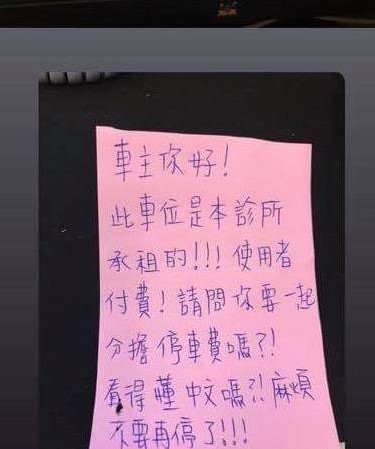 車主你好!
此車位是本診所
承租的!!! 使用者
付費! 請問你要一起
分擔停車費嗎?!
看得懂中文嗎?! 麻煩
不要再停了!!!